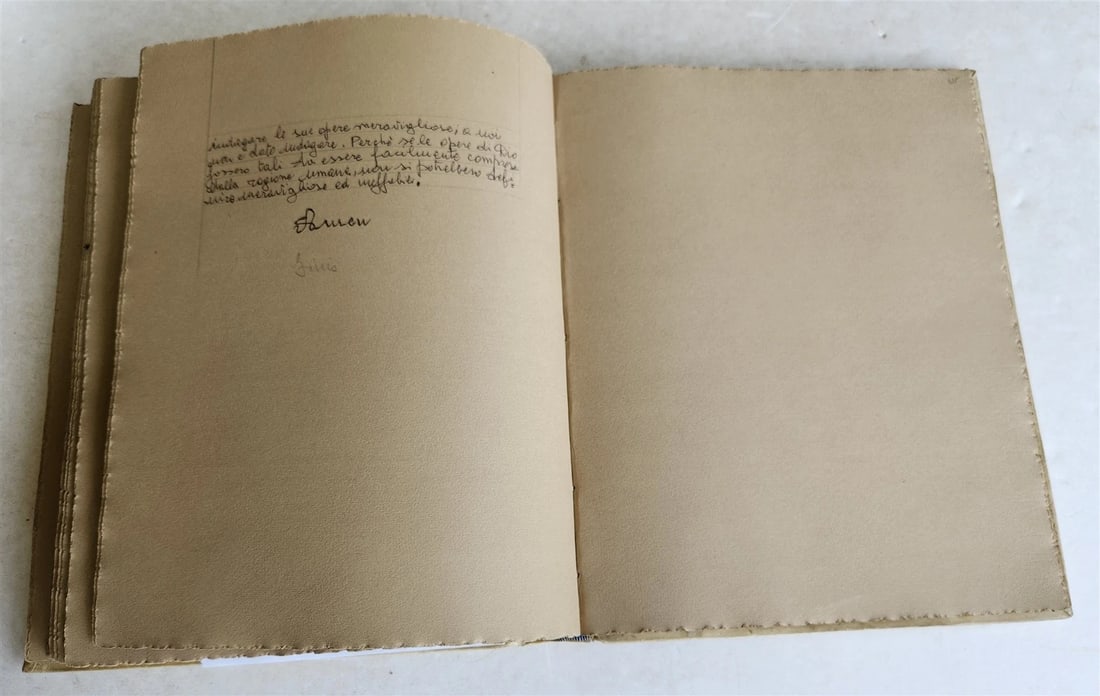 indagare le sue opere meravigliose; a noi
non è dato indagare. Perchè se le opere di Dio
fossero tali da essere facilmente comprese
dalla ragione umana, non si potrebbero defi-
nire meravigliose ed ineffabili.
Amen
Finis